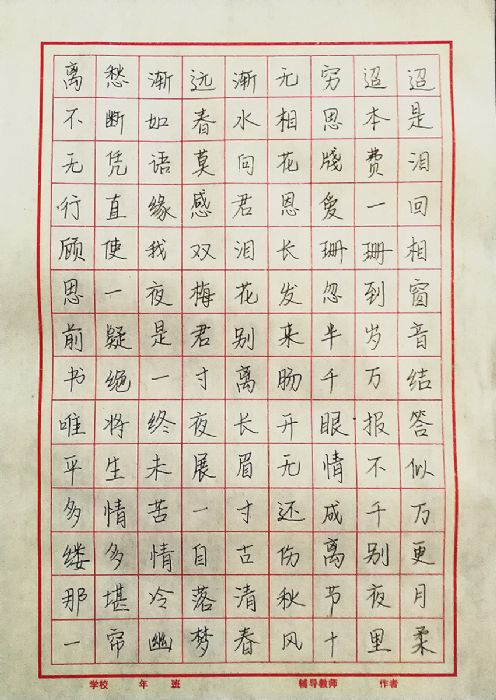 离愁渐远渐无穷迢迢
不断如春水相思本是
无凭语莫向花牋费泪
行直缘感君恩愛一回
顾使我双泪长珊珊相
思一夜梅花发忽到窗
前疑是君别来半岁音
书绝一寸离肠千万结
唯将终夜长开眼报答
平生未展眉无情不似
多情苦一寸还成千万
缕多情自古伤离别更
那堪冷落清秋节夜月
一帘幽梦春风十里柔
学校 年 班 辅导教师 作者